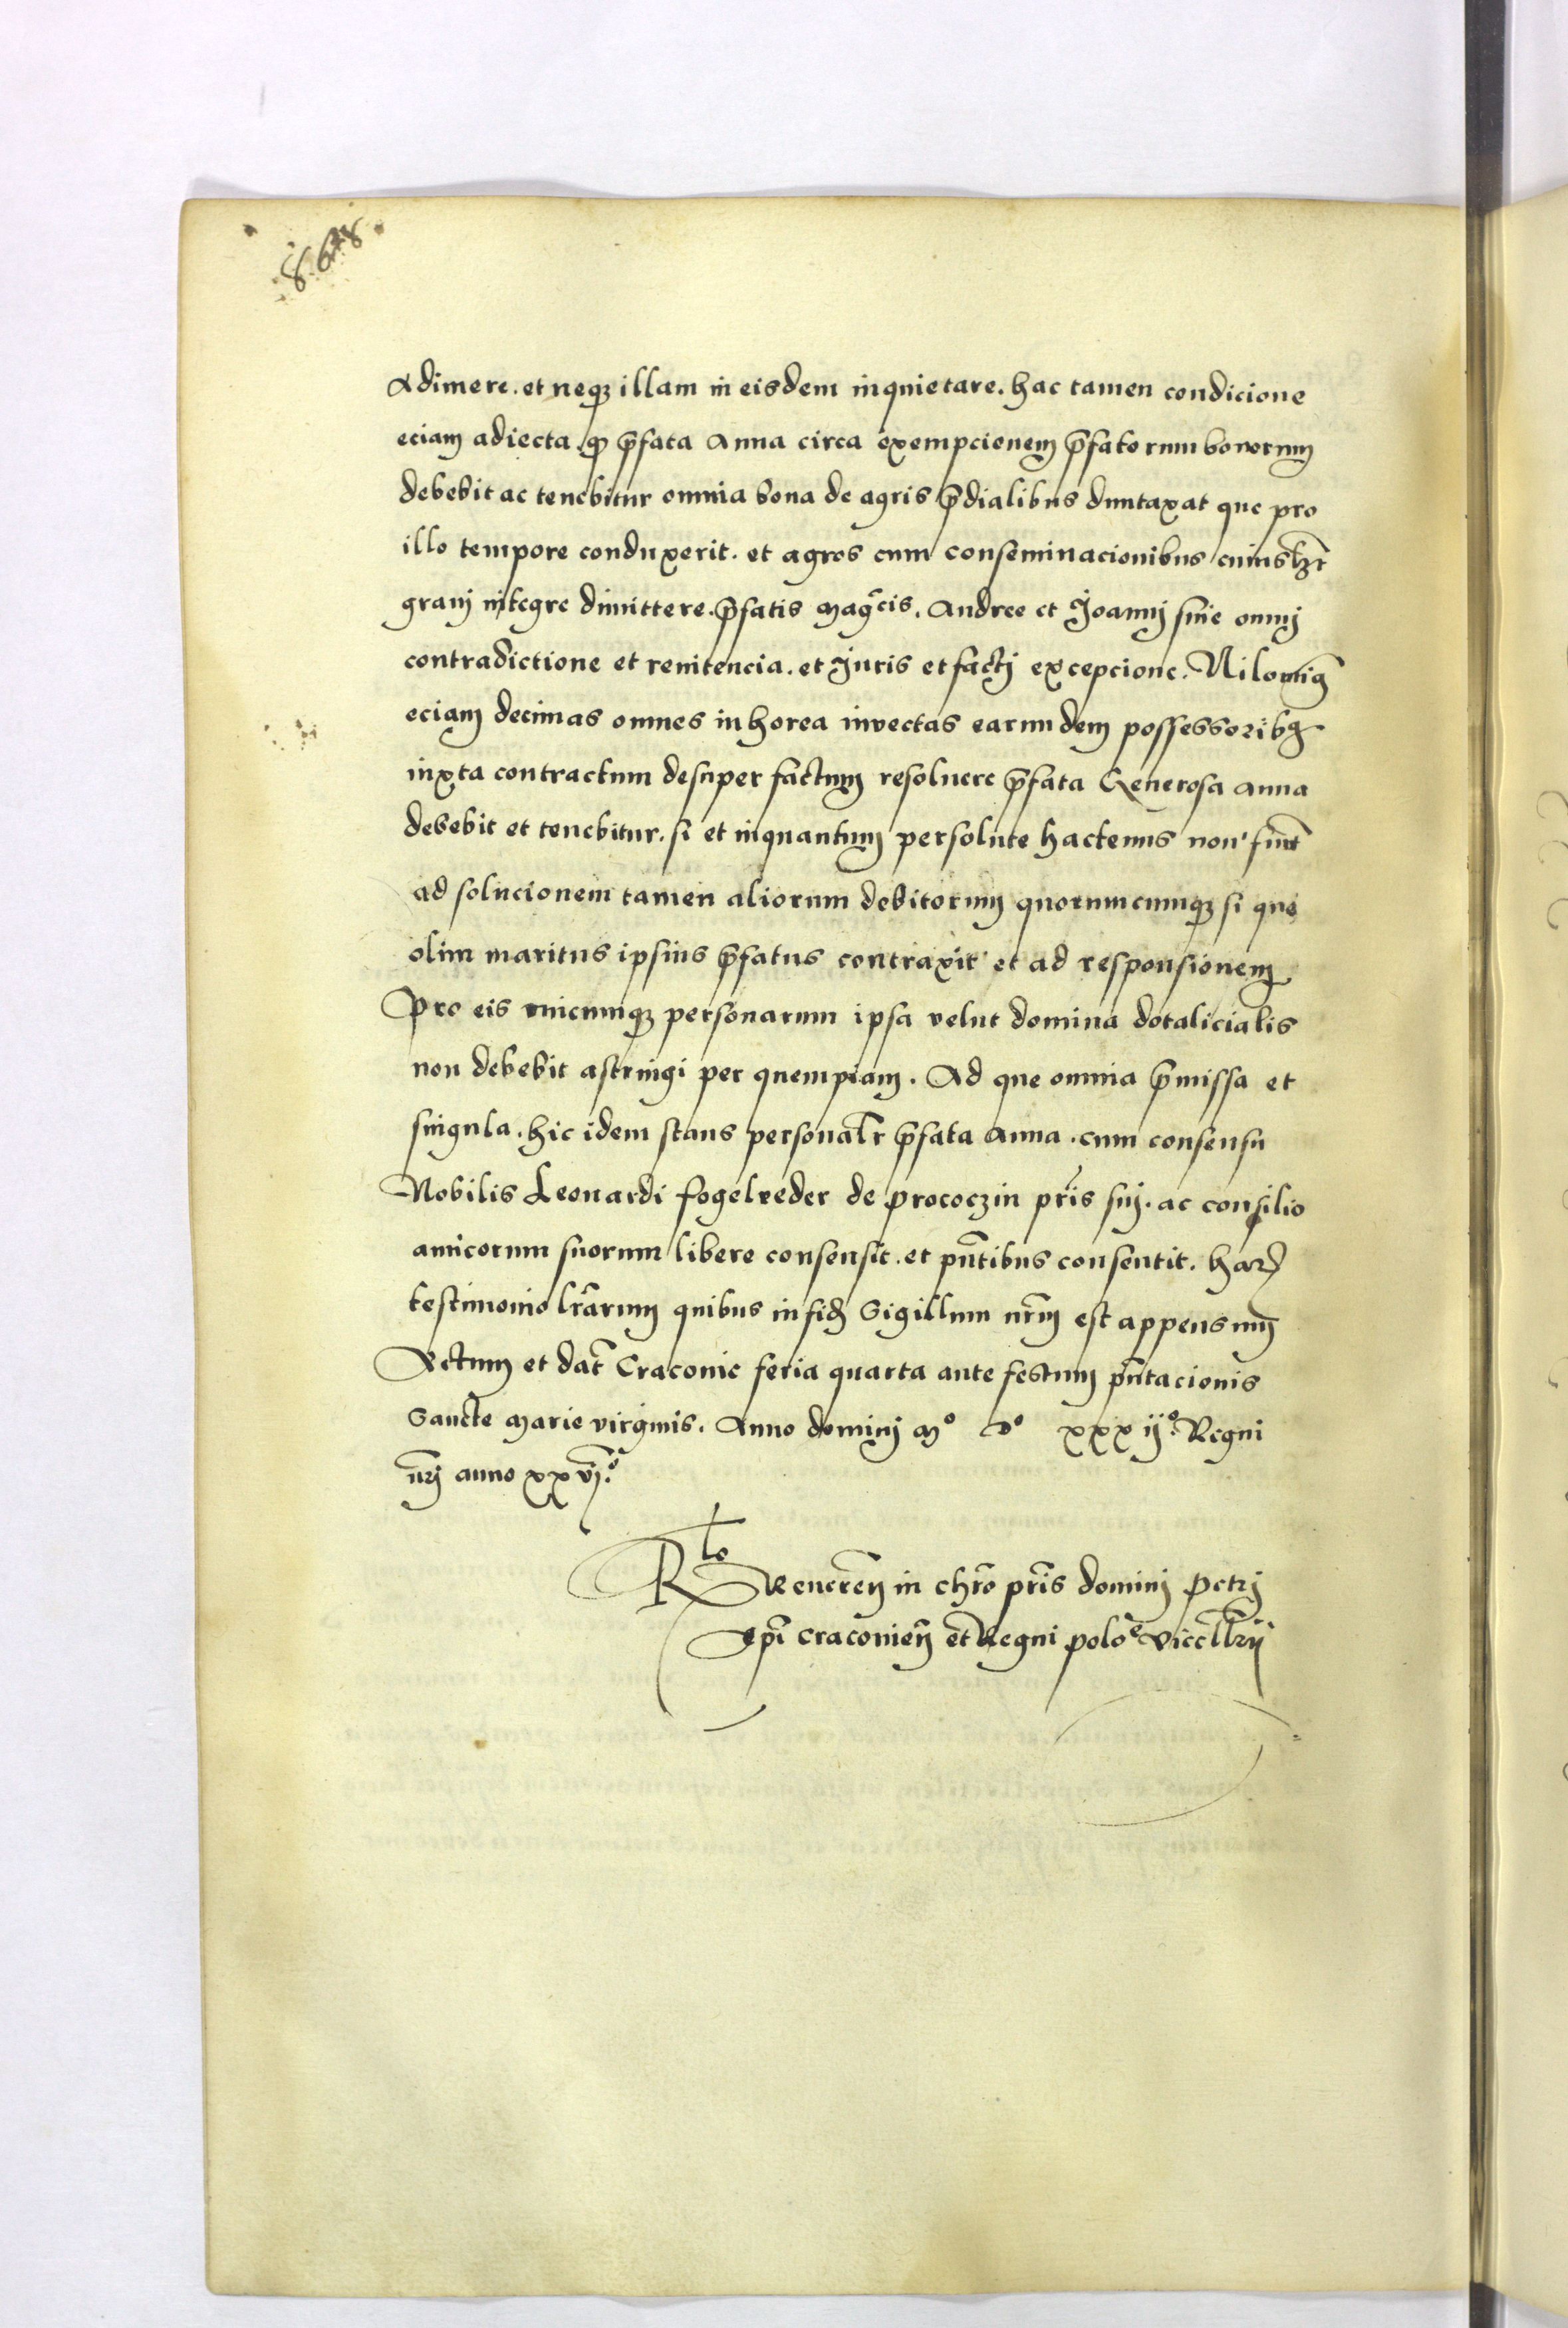 Adimere. et neqȝ illam in eisdem inquietare. hac tamen condicione
eciam adiecta. ꝙ p̄fata Anna circa exempcionem p̄fatorum bonorum
debebit ac tenebitur omnia bona de agris p̄dialibus duntaxat que pro
illo tempore conduxerit. et agros cum conseminacionibus cuiusłȝt
grani integre dimittere. p̄fatis mag̃cis. Andree et Joanni sine omnj
contradictione et renitencia. et Juris et factj excepcione. Nilomiꝰ
eciam decimas omnes in horea invectas earumdem possessoribꝫ
iuxta contractum desuper factum resoluere p̄fata Generosa Anna
debebit et tenebitur. si et inquantum persolute hactenus non sint̄
ad solucionem tamen aliorum debitorum quorumcumqȝ si que
olim maritus ipsius p̄fatus contraxit et ad responsionem
pro eis cuicumqȝ personarum ipsa velut domina dotalicialis
non debebit astringi per quempiam. Ad que omnia p̄missa et
singula. hic idem stans personalr̄ p̄fata Anna. cum consensu
Nobilis Leonardi Fogelveder de prococzin pr̃is sui. ac consilio
amicorum suorum libere consensit. et pn̄tibus consentit. harꝝ
testimonio lr̃arum quibus in fidē Sigillum nr̃m est appensum
Actum et dat̄ Cracouie feria quarta ante festum pn̄tacionis
Sancte marie virginis. Anno dominj mº dº xxx ijº. Regni
nr̃j anno xxvjº.
Rlo Reueren̄ in chr̃o pr̃is dominj petrj
Ep̃i Cracouien̄ et Regni poloẽ vicecllr̃ij